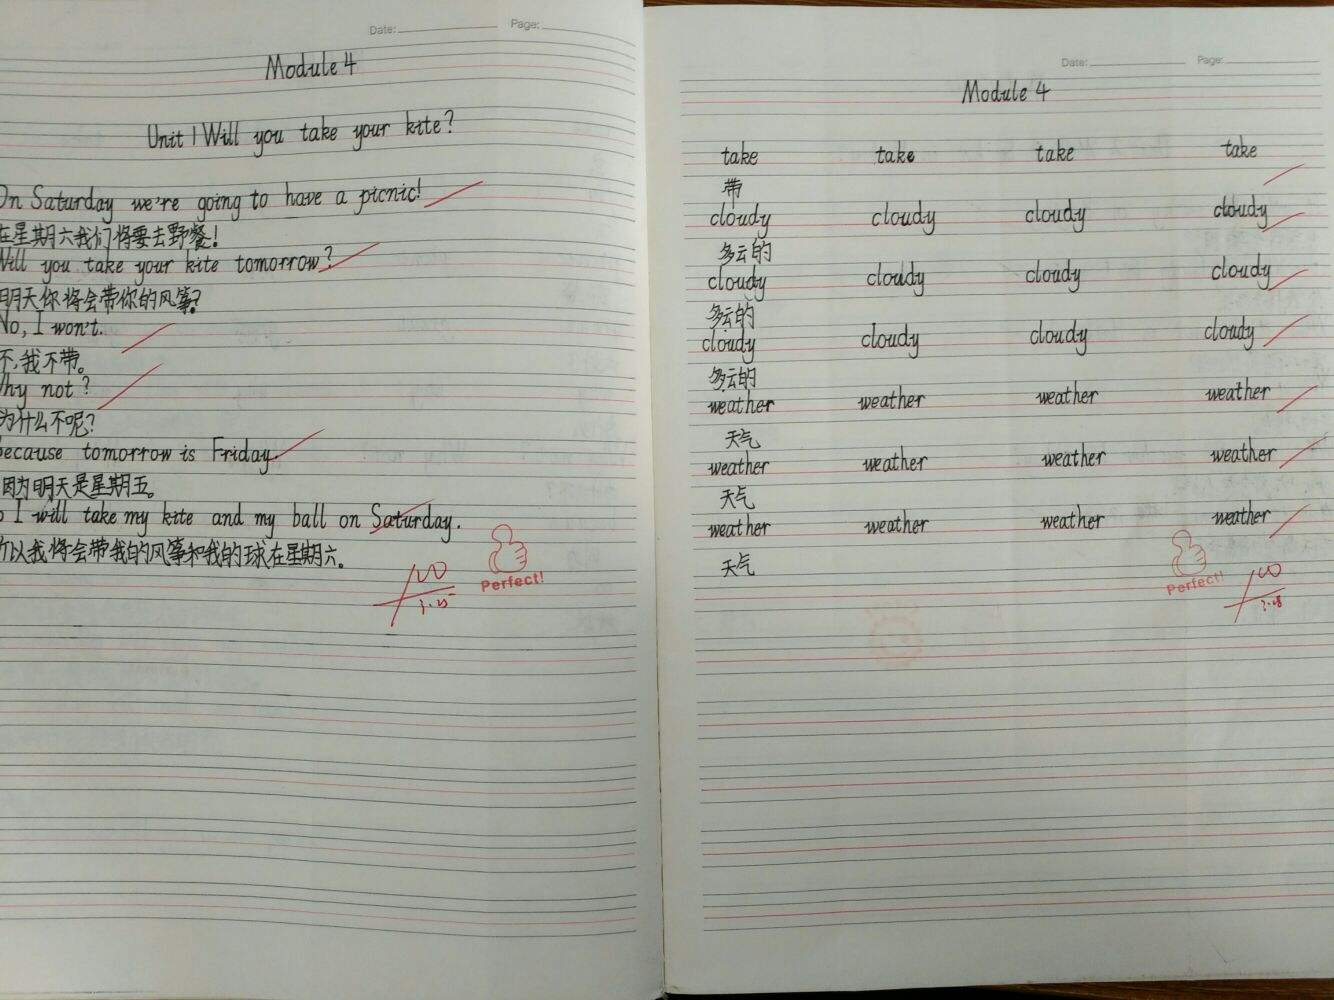 Date: Page:
Module 4
Unit 1 Will you take your kite?
On Saturday we're going to have a picnic!
在星期六我们将要去野餐!
Will you take your kite tomorrow?
明天你将会带你的风筝?
No, I won't.
不,我不带。
Why not?
为什么不呢?
because tomorrow is Friday.
因为明天是星期五。
I will take my kite and my ball on Saturday.
所以我将会带我的风筝和我的球在星期六。
Perfect!
100
Date: Page:
Module 4
take take take take
带
cloudy cloudy cloudy cloudy
多云的
cloudy cloudy cloudy cloudy
多云的
cloudy cloudy cloudy cloudy
多云的
weather weather weather weather
天气
weather weather weather weather
天气
weather weather weather weather
天气
Perfect!
100